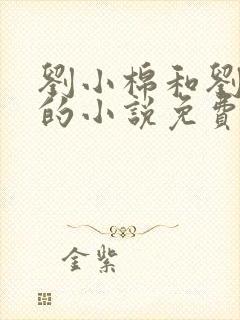 劉小棉和劉
的小說免費
金紫